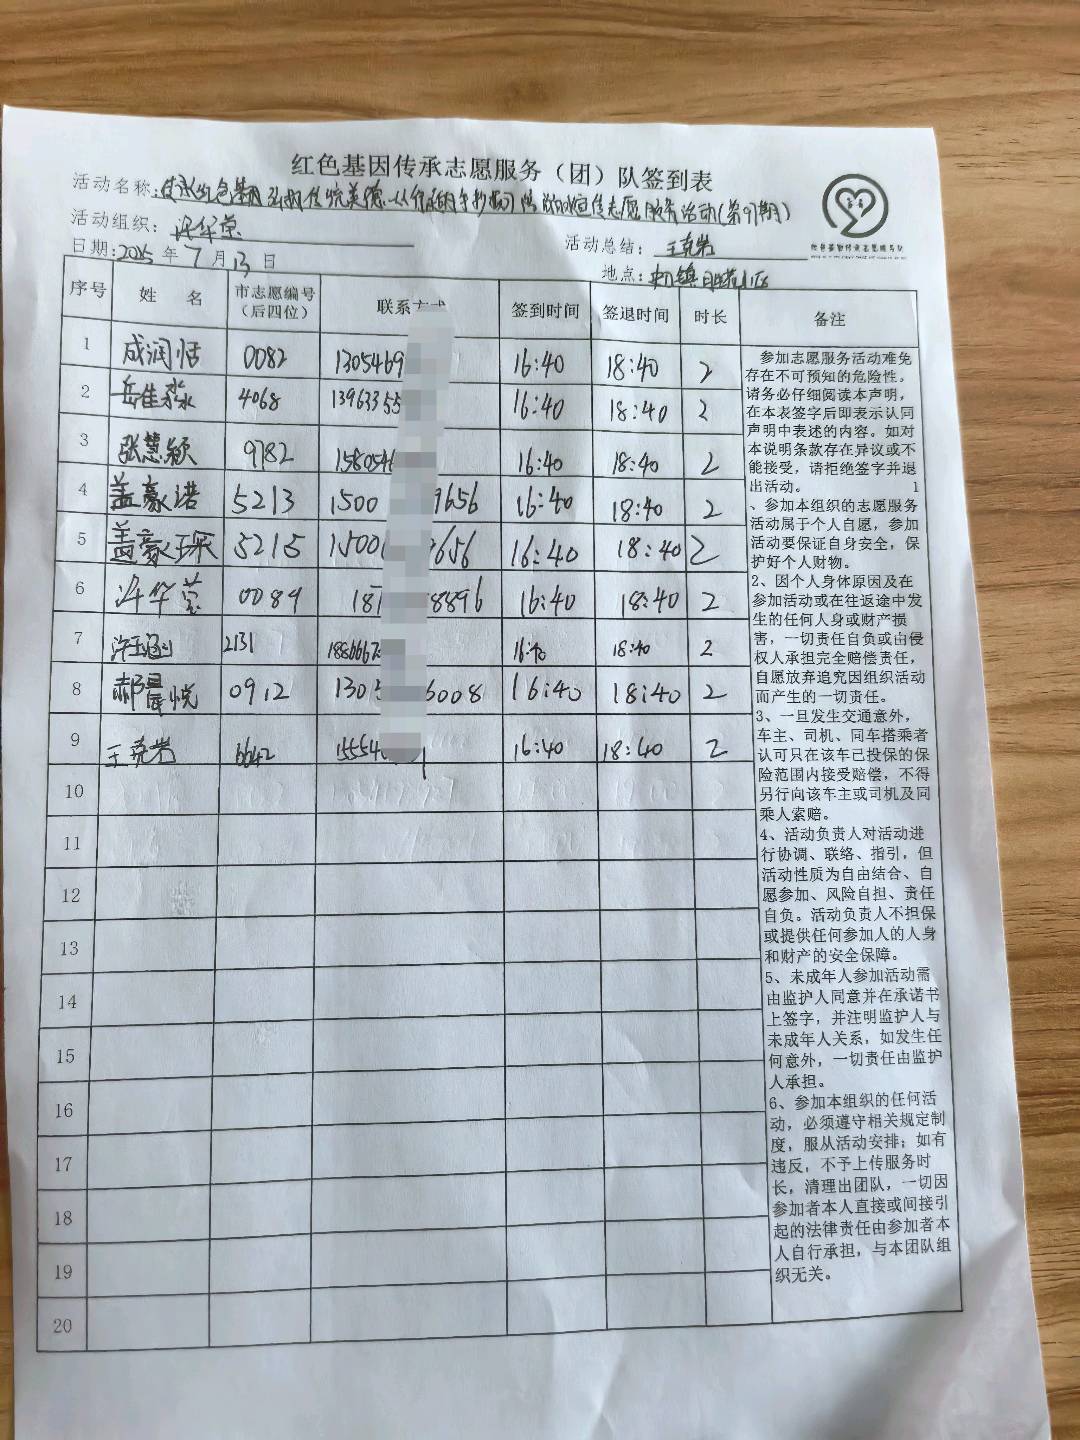 红色基因传承志愿服务（团）队签到表
活动名称: 传承红色基因 弘扬传统美德 志愿服务活动(第97期)
活动组织: 许华莹
活动总结: 王克岩
日期: 2025 年 7 月 13 日
地点: 小区
序号 姓 名 市志愿编号（后四位） 联系方式 签到时间 签退时间 时长 备注
1 成润恬 0082 1305469 16:40 18:40 2
2 岳佳淼 4068 13963355 16:40 18:40 2
3 张慧颖 9782 1580546 16:40 18:40 2
4 盖豪诺 5213 1500 9656 16:40 18:40 2
5 盖豪琛 5215 1500 656 16:40 18:40 2
6 许华莹 0089 18 8896 16:40 18:40 2
7 许玉涵 2131 1886667 16:40 18:40 2
8 郝晨悦 0912 130 6008 16:40 18:40 2
9 王克岩 6642 15554 16:40 18:40 2
10
11
12
13
14
15
16
17
18
19
20
参加志愿服务活动难免
存在不可预知的危险性，
请务必仔细阅读本声明，
在本表签字后即表示认同
声明中表述的内容。如对
本说明条款存在异议或不
能接受，请拒绝签字并退
出活动。 1
、参加本组织的志愿服务
活动属于个人自愿，参加
活动要保证自身安全，保
护好个人财物。
2、因个人身体原因及在
参加活动或在往返途中发
生的任何人身或财产损
害，一切责任自负或由侵
权人承担完全赔偿责任，
自愿放弃追究因组织活动
而产生的一切责任。
3、一旦发生交通意外，
车主、司机、同车搭乘者
认可只在该车已投保的保
险范围内接受赔偿，不得
另行向该车主或司机及同
乘人索赔。
4、活动负责人对活动进
行协调、联络、指引，但
活动性质为自由结合、自
愿参加、风险自担、责任
自负。活动负责人不担保
或提供任何参加人的人身
和财产的安全保障。
5、未成年人参加活动需
由监护人同意并在承诺书
上签字，并注明监护人与
未成年人关系，如发生任
何意外，一切责任由监护
人承担。
6、参加本组织的任何活
动，必须遵守相关规定制
度，服从活动安排；如有
违反，不予上传服务时
长，清理出团队，一切因
参加者本人直接或间接引
起的法律责任由参加者本
人自行承担，与本团队组
织无关。